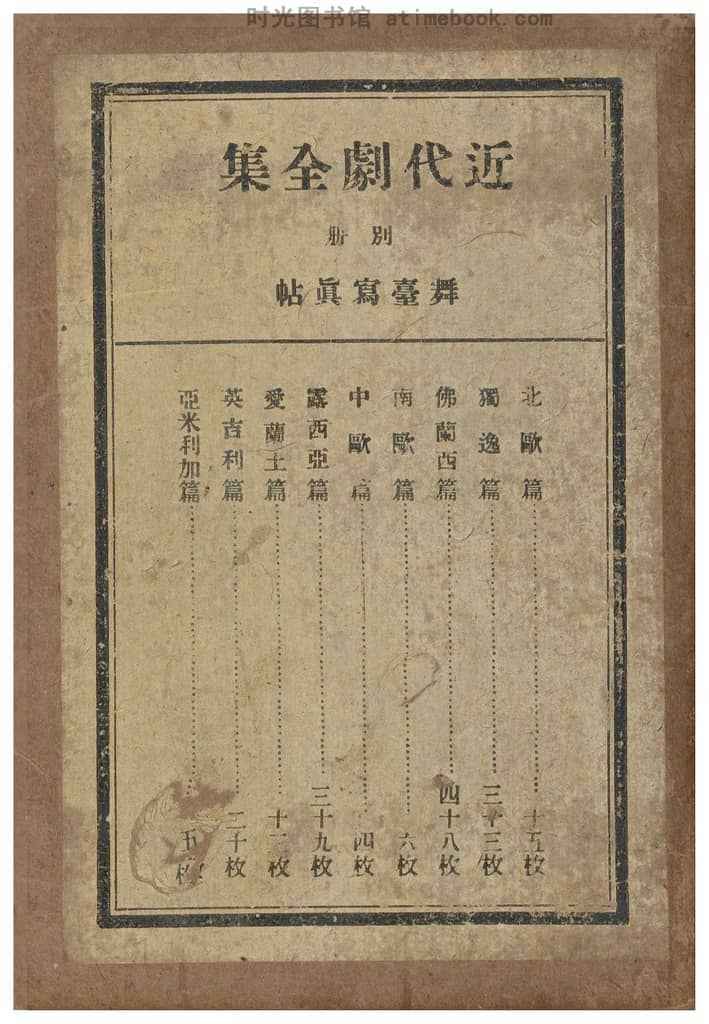 时光图书馆 atimebook.com
近代劇全集
別冊
舞臺寫眞帖
北歐篇……十五枚
獨逸篇……三十三枚
佛蘭西篇……四十八枚
南歐篇……六枚
中歐篇……四枚
露西亞篇……三十九枚
愛蘭土篇……十二枚
英吉利篇……二十枚
亞米利加篇……五枚